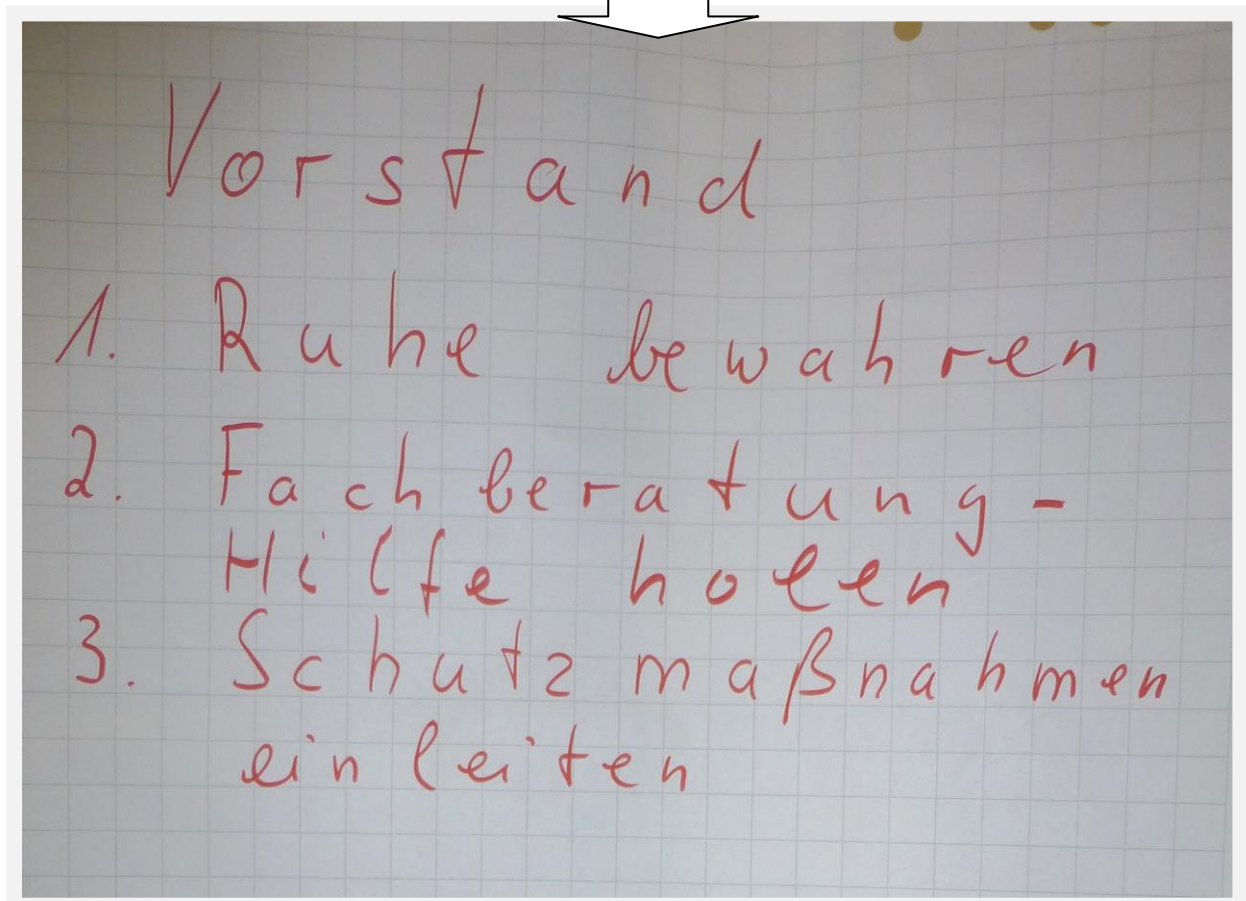 Vorstand
1. Ruhe bewahren
2. Fachberatung-
Hilfe holen
3. Schutzmaßnahmen
einleiten